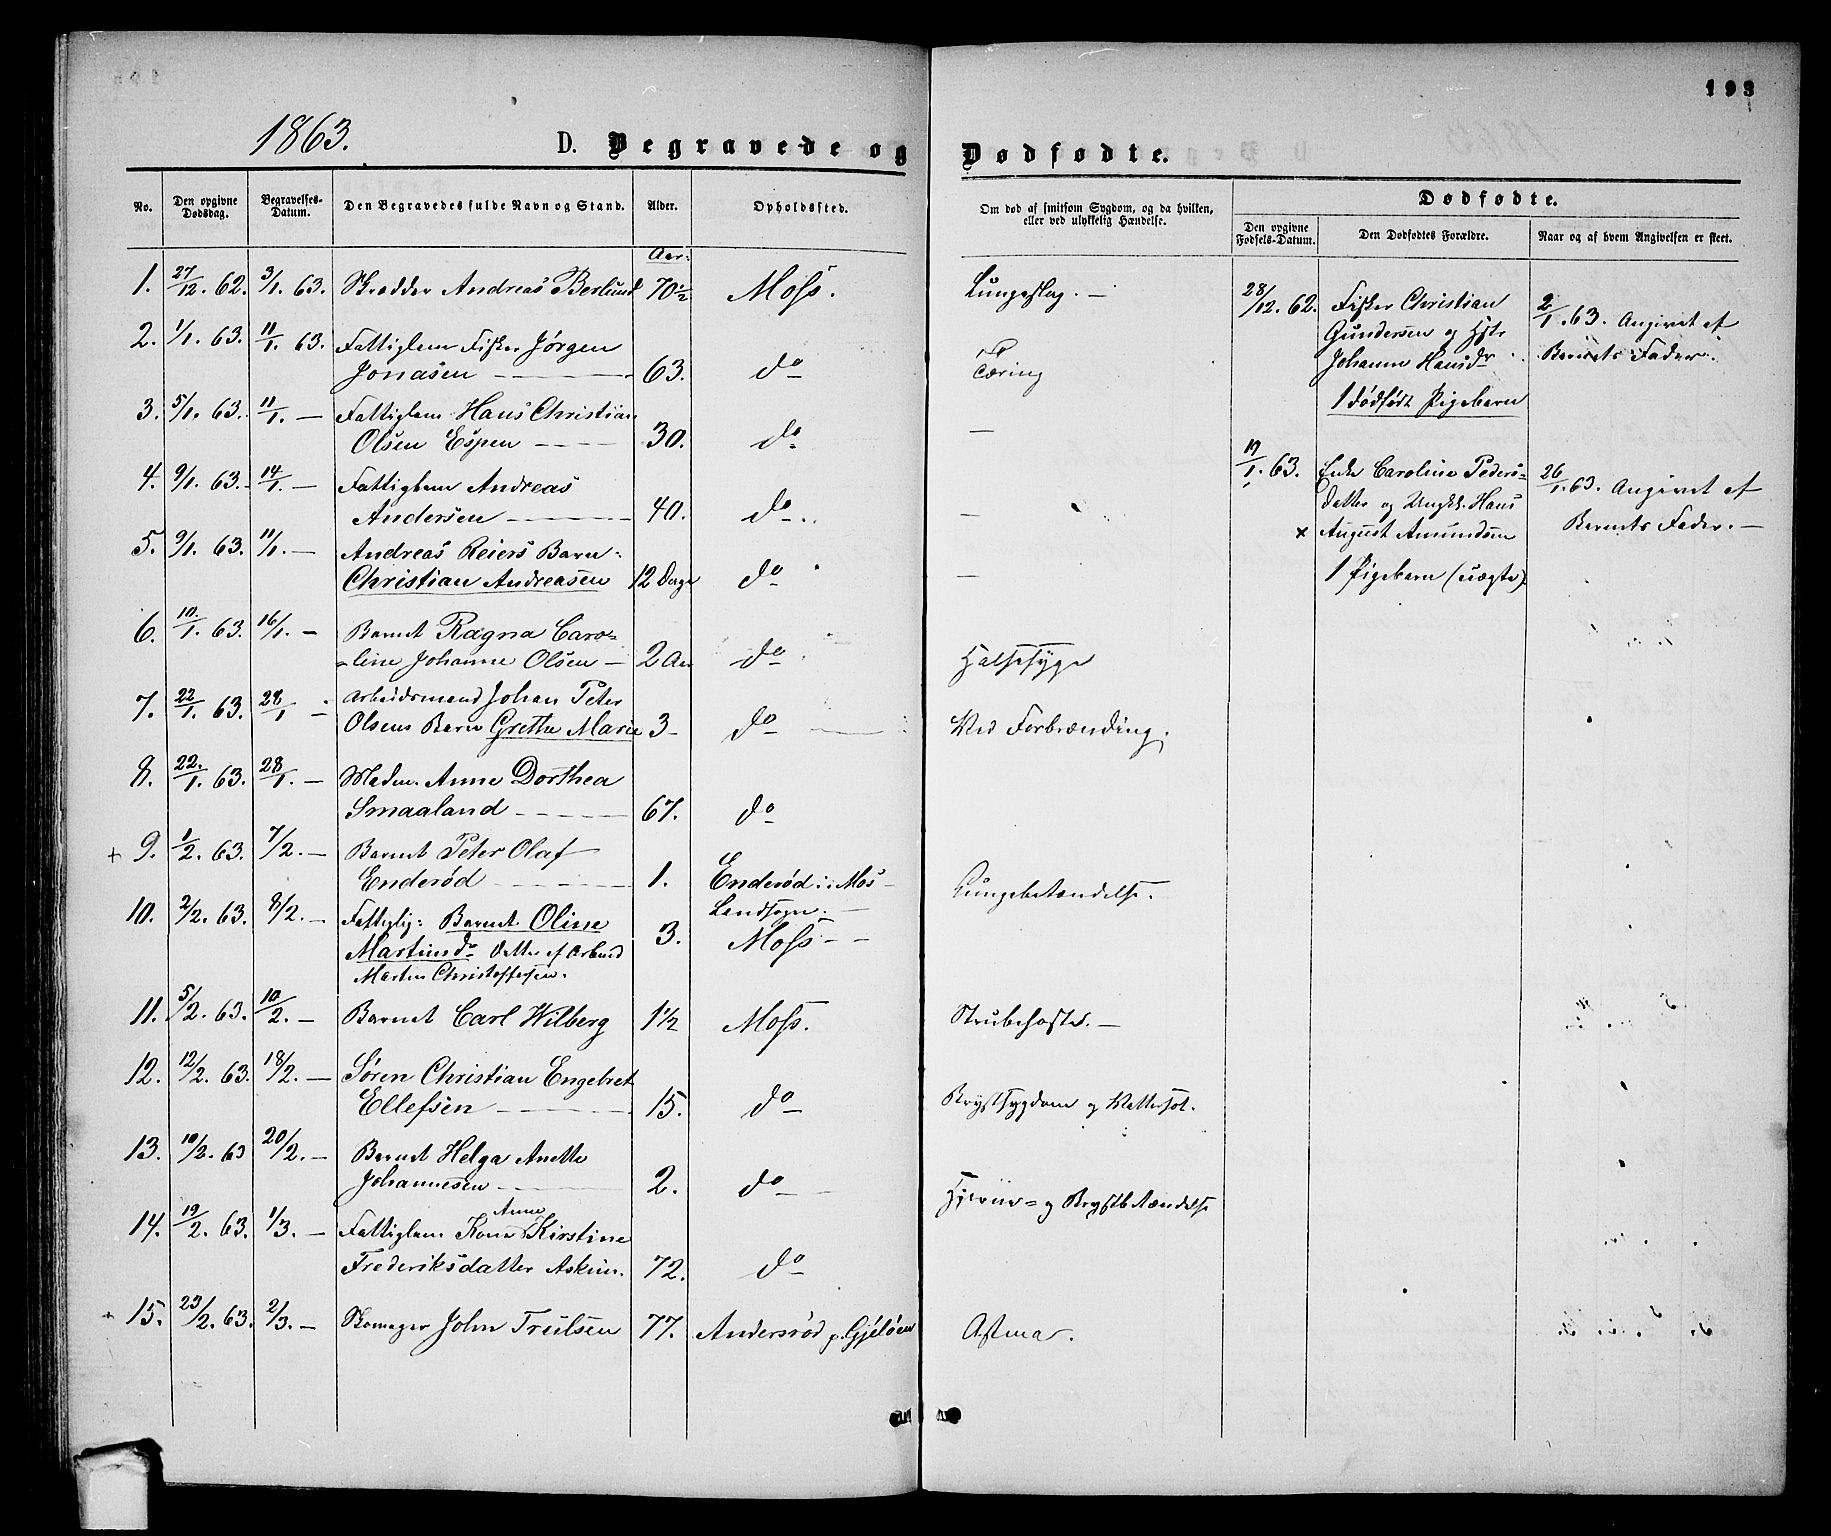 193
1863.
D. Begravede og Dødfødte.
No.
Den opgivne Dødsdag.
Begravelses-Datum.
Den Begravedes fulde Navn og Stand.
Alder.
Opholdssted.
Om død af smitsom Sygdom, og da hvilken,
eller ved ulykkelig Hændelse.
Dødfødte.
Den opgivne Fødsels-Datum.
Den Dødfødtes Forældre.
Naar og af hvem Angivelsen er skeet.
Aar:
1. 27/12. 62. 3/1. 63. Skrædder Andreas Berlund 70 1/2 Moss. Lungeslag. —
2. 1/1. 63. 11/1. 63. Fattiglem Fisker Jørgen
Jonasen — 63. do Tæring
3. 5/1. 63. 11/1. — Fattiglem Hans Christian
Olsen Espen — 30. do —
4. 9/1. 63. 14/1. — Fattiglem Andreas
Andersen — 40. do —
5. 9/1. 63. 11/1. — Andreas Reiers Barn
Christian Andreasen 12 Dage do —
6. 10/1. 63. 16/1. — Barnet Ragna Caro-
line Johanne Olsen — 2 Aar do Halssyge
7. 22/1. 63. 28/1 — Arbeidsmand Johan Peter
Olsens Barn Grethe Marie 3 — do Ved Forbrænding.
8. 22/1. 63. 28/1. — Madm. Anne Dorthea
Smaaland — 67. do
+ 9. 1/2. 63. 7/2. — Barnet Peter Olaf
Enderød — 1. Enderød i Mos
Landsogn. — Lungebetændelse.
10. 2/2. 63. 8/2. — Fattiglj: Barnet Oline
Martinsd. Datter af Arbmd 3. Moss —
Martin Christoffersen.
11. 5/2. 63. 10/2. — Barnet Carl Wilberg 1 1/2 Moss. Strubehoste. —
12. 12/2. 63. 18/2. — Søren Christian Engebret
Ellefsen — 15. do Brystsygdom og Vattersot.
13. 10/2. 63 20/2. — Barnet Helga Anette
Johannesen — 2. do — Hjerne- og Brystbetændelse
14. 19/2. 63. 1/3. — Fattiglem Kone Anne Kirstine
Frederiksdatter Askim. 72. do
+ 15. 23/2. 63. 2/3. — Skomager John Trulsen 77. Andersrød p. Gjeløen Astma.
28/12. 62. Fisker Christian
Gundersen og Hstr
Johanne Hansdr
1 dødfødt Pigebarn
2/1. 63. Angivet af
Barnets Fader.
19/1. 63. Enke Caroline Peders-
datter og Ungk. Hans
× August Amundsen
1 Pigebarn (uægte)
26/1. 63. Angivet af
Barnets Fader. —